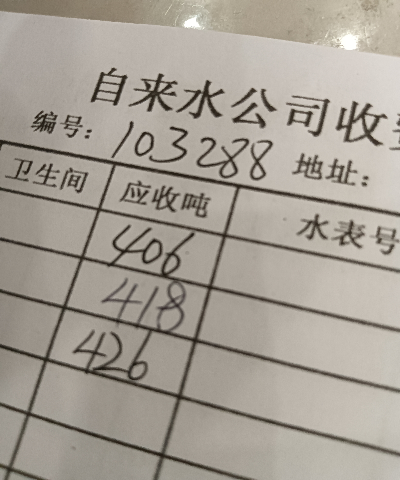 自来水公司收
编号: 103288 地址:
卫生间 应收吨 水表号
406
418
426